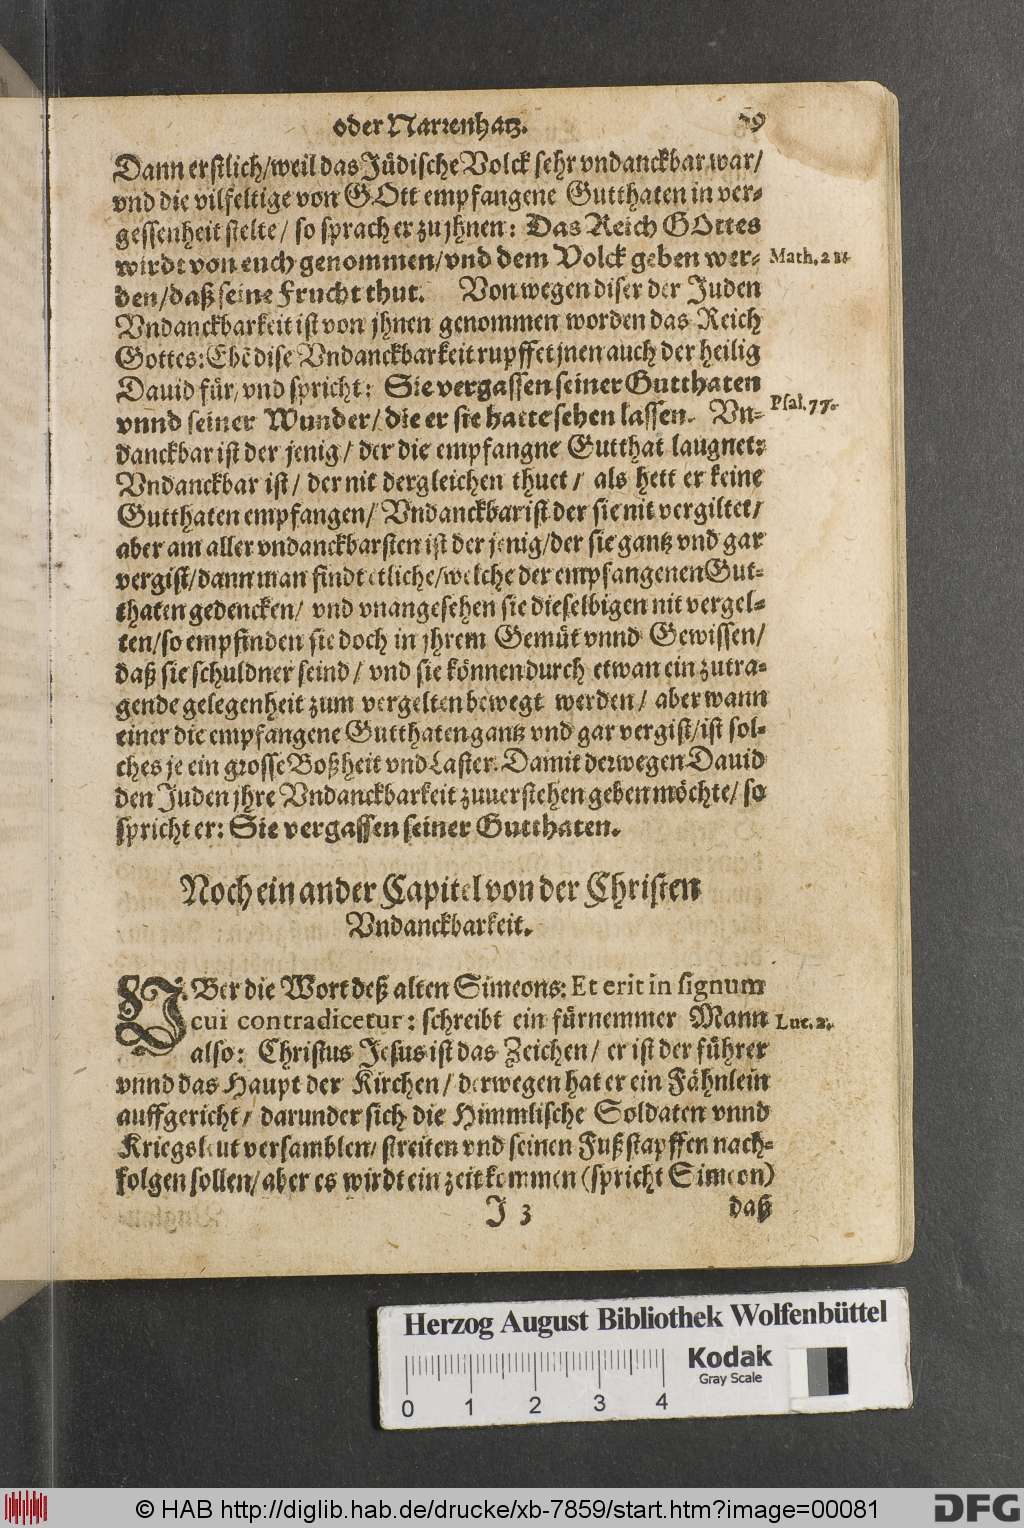 oder Narrenhatz. 69
Dann erstlich/weil das Jüdische Volck sehr vndanckbar war/
vnd die vilfeltige von GOtt empfangene Gutthaten in ver-
gessenheit stelte/ so sprach er zu jhnen: Das Reich GOttes
wirdt von euch genommen/vnd dem Volck geben wer- Math. 21.
den/daß seine Frucht thut. Von wegen diser der Juden
Vndanckbarkeit ist von jhnen genommen worden das Reich
Gottes: Ebẽ dise Vndanckbarkeit rupffet jnen auch der heilig
Dauid für, vnd spricht: Sie vergassen seiner Gutthaten
vnnd seiner Wunder/ die er sie hatte sehen lassen. Vn- Psal. 77.
danckbar ist der jenig/ der die empfangne Gutthat laugnet:
Vndanckbar ist/ der nit dergleichen thuet/ als hett er keine
Gutthaten empfangen/ Vndanckbar ist der sie nit vergiltet/
aber am aller vndanckbarsten ist der jenig/der sie gantz vnd gar
vergist/dann man findt etliche/welche der empfangenen Gut-
thaten gedencken/ vnd vnangesehen sie dieselbigen nit vergel-
ten/so empfinden sie doch in jhrem Gemüt vnnd Gewissen/
daß sie schuldner seind/ vnd sie können durch etwan ein zutra-
gende gelegenheit zum vergelten bewegt werden/ aber wann
einer die empfangene Gutthaten gantz vnd gar vergist/ist sol-
ches je ein grosse Boßheit vnd Laster. Damit derwegen Dauid
den Juden jhre Vndanckbarkeit zuuerstehen geben möchte/ so
spricht er: Sie vergassen seiner Gutthaten.
Noch ein ander Capitel von der Christen
Vndanckbarkeit.
VBer die Wort deß alten Simeons: Et erit in signum
cui contradicetur: schreibt ein fürnemmer Mann Luc. 2.
also: Christus Jesus ist das Zeichen/ er ist der führer
vnnd das Haupt der Kirchen/ derwegen hat er ein Fähnlein
auffgericht/ darunder sich die Himmlische Soldaten vnnd
Kriegsleut versamblen/ streiten vnd seinen Fußstapffen nach-
folgen sollen/ aber es wirdt ein zeit kommen (spricht Simeon)
J 3 daß
Herzog August Bibliothek Wolfenbüttel
Kodak
Gray Scale
0 1 2 3 4
© HAB http://diglib.hab.de/drucke/xb-7859/start.htm?image=00081
DFG